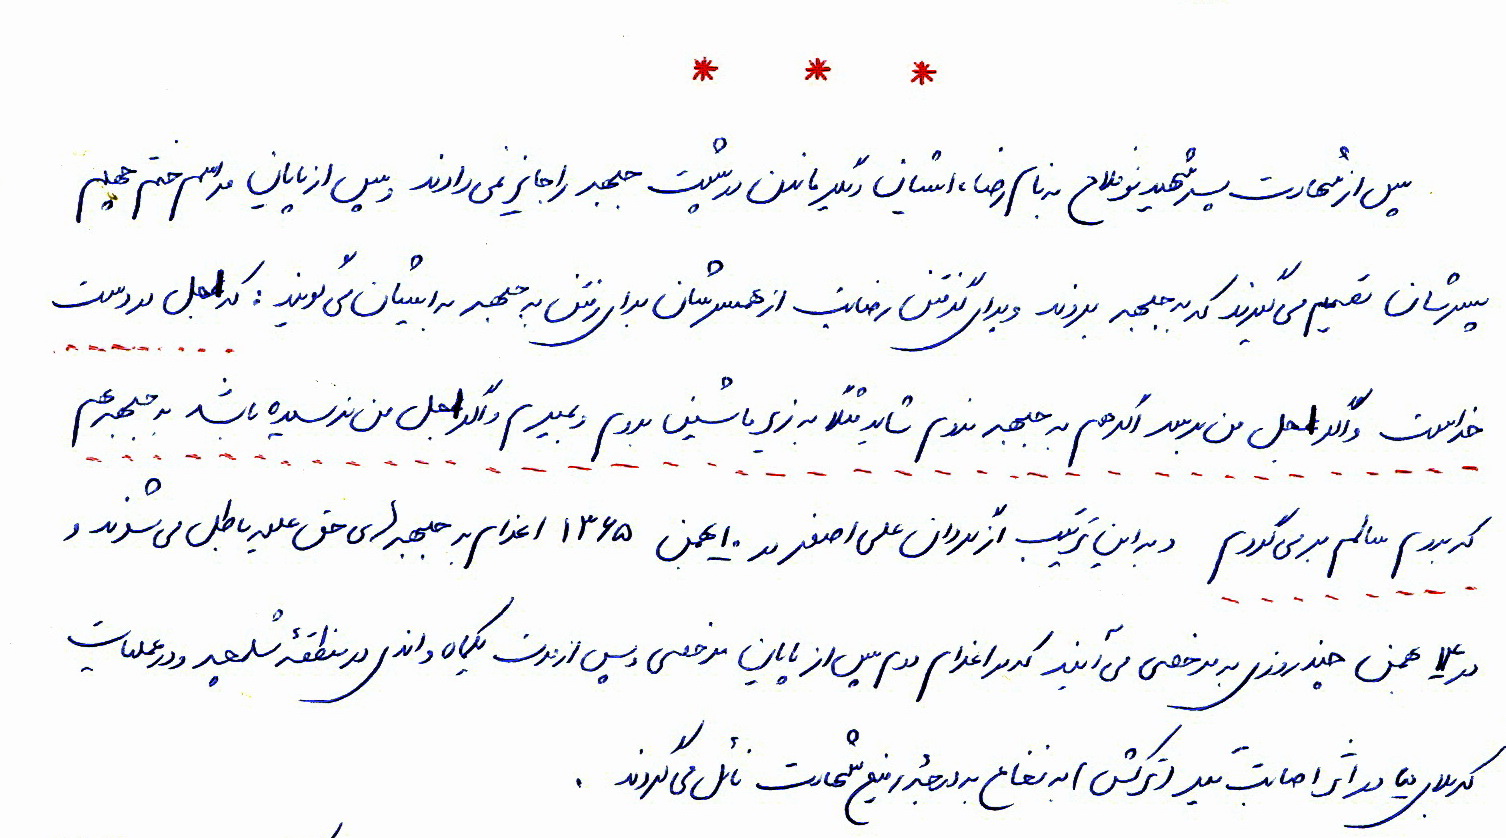 * * *
پس از شهادت پسر شهید نوفلاح به نام رضا، ایشان دیگر ماندن در پشت جبهه را جایز نمی دادند و پس از پایان مراسم ختم چهلم
پسرشان تصمیم می گیرند که به جبهه بروند و برای گرفتن رضایت از همسرشان برای رفتن به جبهه به ایشان می گویند : که اجل در دست
خداست و اگر اجل من برسد اگر هم به جبهه نروم شاید مثلاً به زیر ماشین بروم و بمیرم و اگر اجل من نرسیده باشد به جبهه هم
که بروم سالم بر می گردم و به این ترتیب از گردان علی اصغر در ۱۰ بهمن ۱۳۶۵ اعزام به جبهه های حق علیه باطل می شوند و
در بهمن چند روزی به مرخصی می آیند که در اعزام دوم پس از پایان مرخصی و پس از مدت یکماه و اندی در منطقهٔ شلمچه و در عملیات
کربلای در اثر اصابت تیر (ترکش) به نخاع به درجهٔ رفیع شهادت نائل می گردند .